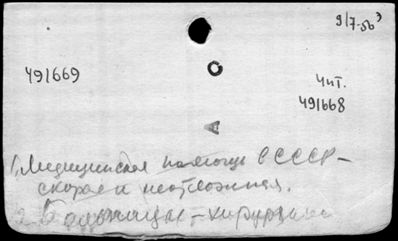 9/7-56
491669
Чит.
491668
1. Медицинская помощь в СССР -
скорая и неотложная.
2. Больницы - хирургич